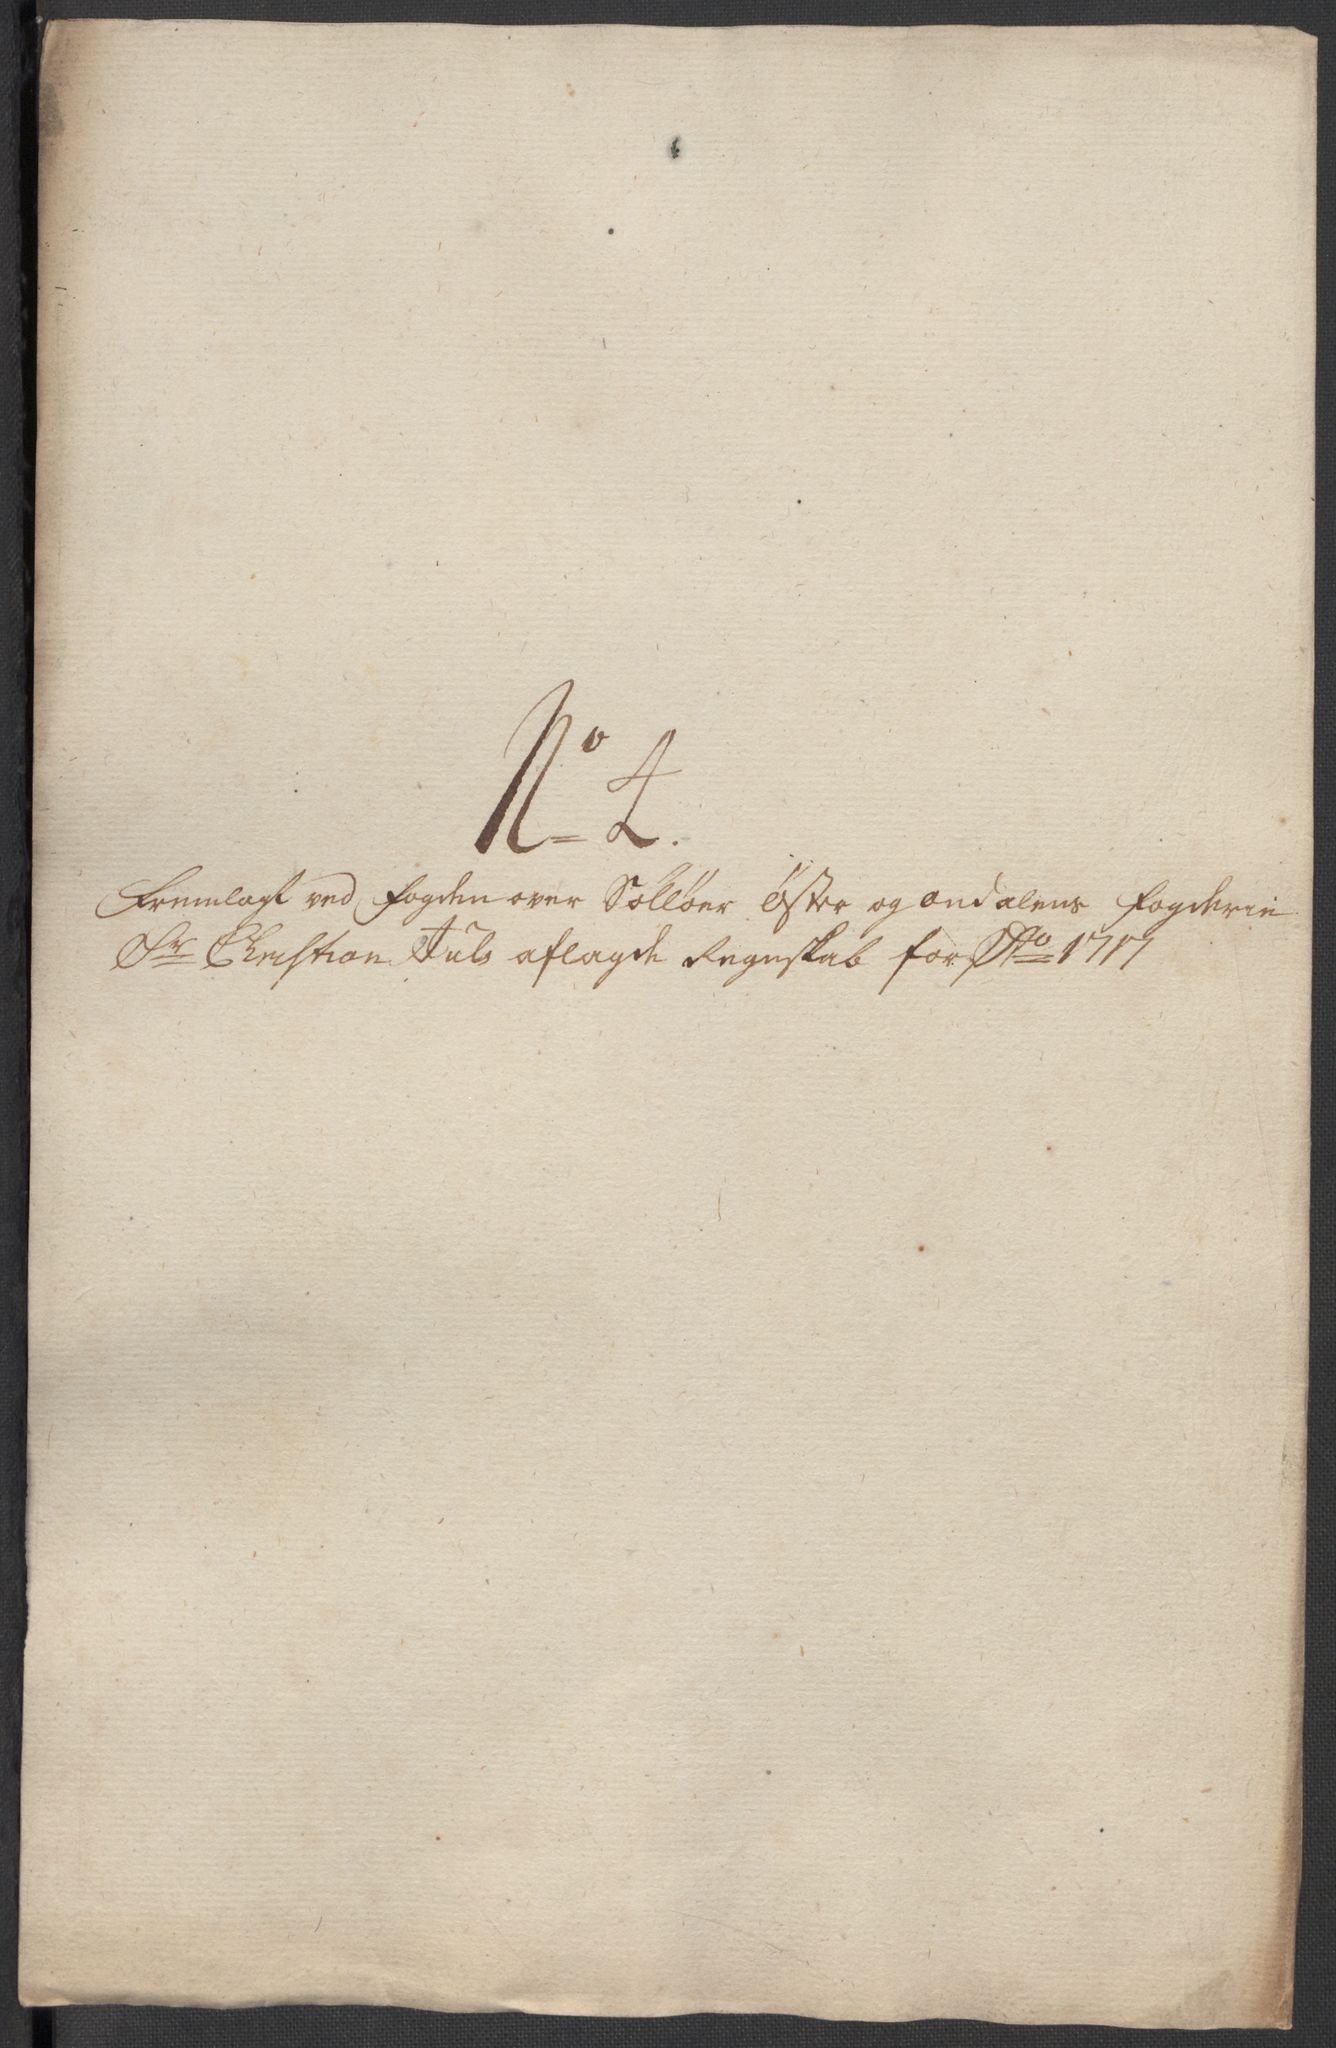 No 4.
Fremlagt ved fogden over Solløer Øster og ondalens fogderie
Sr Christian Juls aflagde Regnskab for Ao 1717